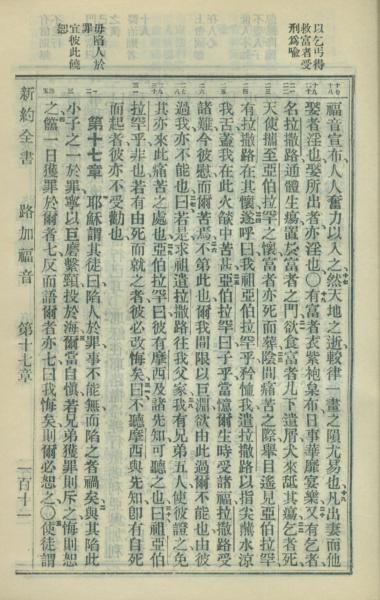 以乞丐得
救富者受
刑為喻
毋陷人於
罪
宜彼此饒
恕
福音宣布人人奮力以入之然天地之逝較律一畫之隕尤易也凡出妻而他
娶者淫也娶所出者亦淫也〇有富者衣紫袍枲布日事華靡宴樂又有乞者
名拉撒路遍體生瘍置於富者之門欲食富者几下遺屑犬來舐其瘍乞者死
天使攜至亞伯拉罕之懷富者亦死而葬陰間痛苦之際舉目遙見亞伯拉罕
有拉撒路在其懷遂呼曰我祖亞伯拉罕乎矜恤我遣拉撒路以指尖蘸水涼
我舌蓋我在此火燄中苦甚亞伯拉罕曰子乎當憶爾生時受諸福拉撒路受
諸難今彼慰而爾苦焉不第此也爾我間限以巨淵欲由此過爾不能也由彼
過我亦不能也曰若是求祖遣拉撒路往我父家我有兄弟五人使彼證之免
其亦來此痛苦之處也亞伯拉罕曰彼有摩西及諸先知可聽之也曰祖亞伯
拉罕乎非也若有由死而就之者彼必改悔矣曰不聽摩西與先知卽有自死
而起者彼亦不受勸也
第十七章 耶穌謂其徒曰陷人於罪事不能無而陷之者禍矣與其陷此
小子之一於罪寧以巨磨繫頸投於海爾當自慎若兄弟獲罪則斥之悔則恕
之雖一日獲罪於爾者七反而語爾者亦七曰我悔矣則爾必恕之〇使徒謂
新約全書 路加福音 第十七章